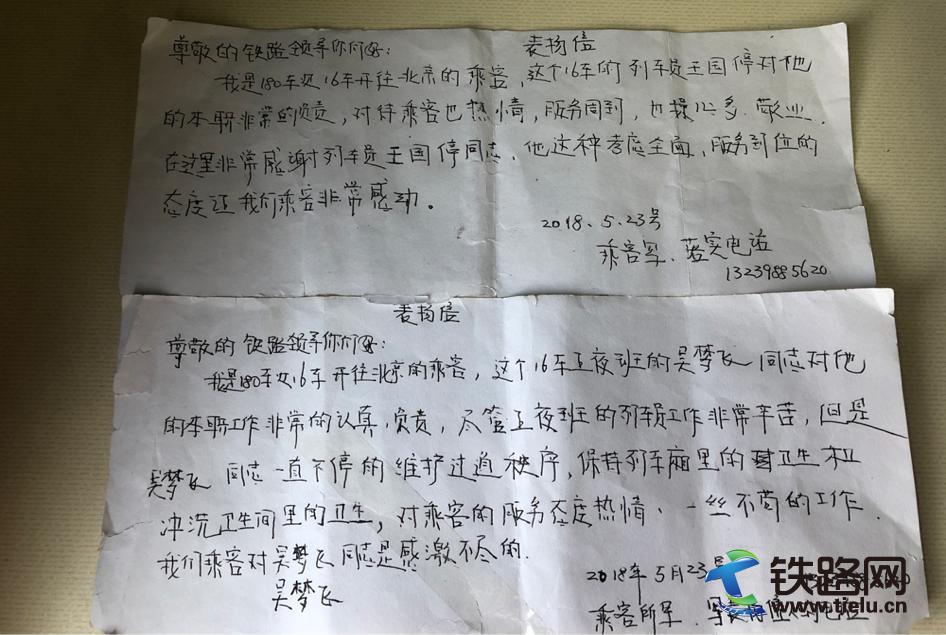 表扬信
尊敬的铁路领导你们好:
我是180车次16车开往北京的乘客,这个16车的列车员王国停对他
的本职非常的负责,对待乘客也热情,服务周到,也操心多.敬业.
在这里非常感谢列车员王国停同志.他这种考虑全面,服务到位的
态度让我们乘客非常感动。
2018.5.23号
乘客写.落实电话
13239885620
表扬信
尊敬的铁路领导你们好:
我是180车次16车开往北京的乘客,这个16车上夜班的吴梦飞同志对他
的本职工作非常的认真,负责,尽管上夜班的列车员工作非常辛苦,但是
吴梦飞同志一直不停的维护过道秩序,保持列车厢里的卫生和
冲洗卫生间里的卫生,对乘客的服务态度热情、一丝不苟的工作.
我们乘客对吴梦飞同志是感激不尽的.
吴梦飞
2018年5月23号
乘客所写.
铁路网
www.tielu.cn